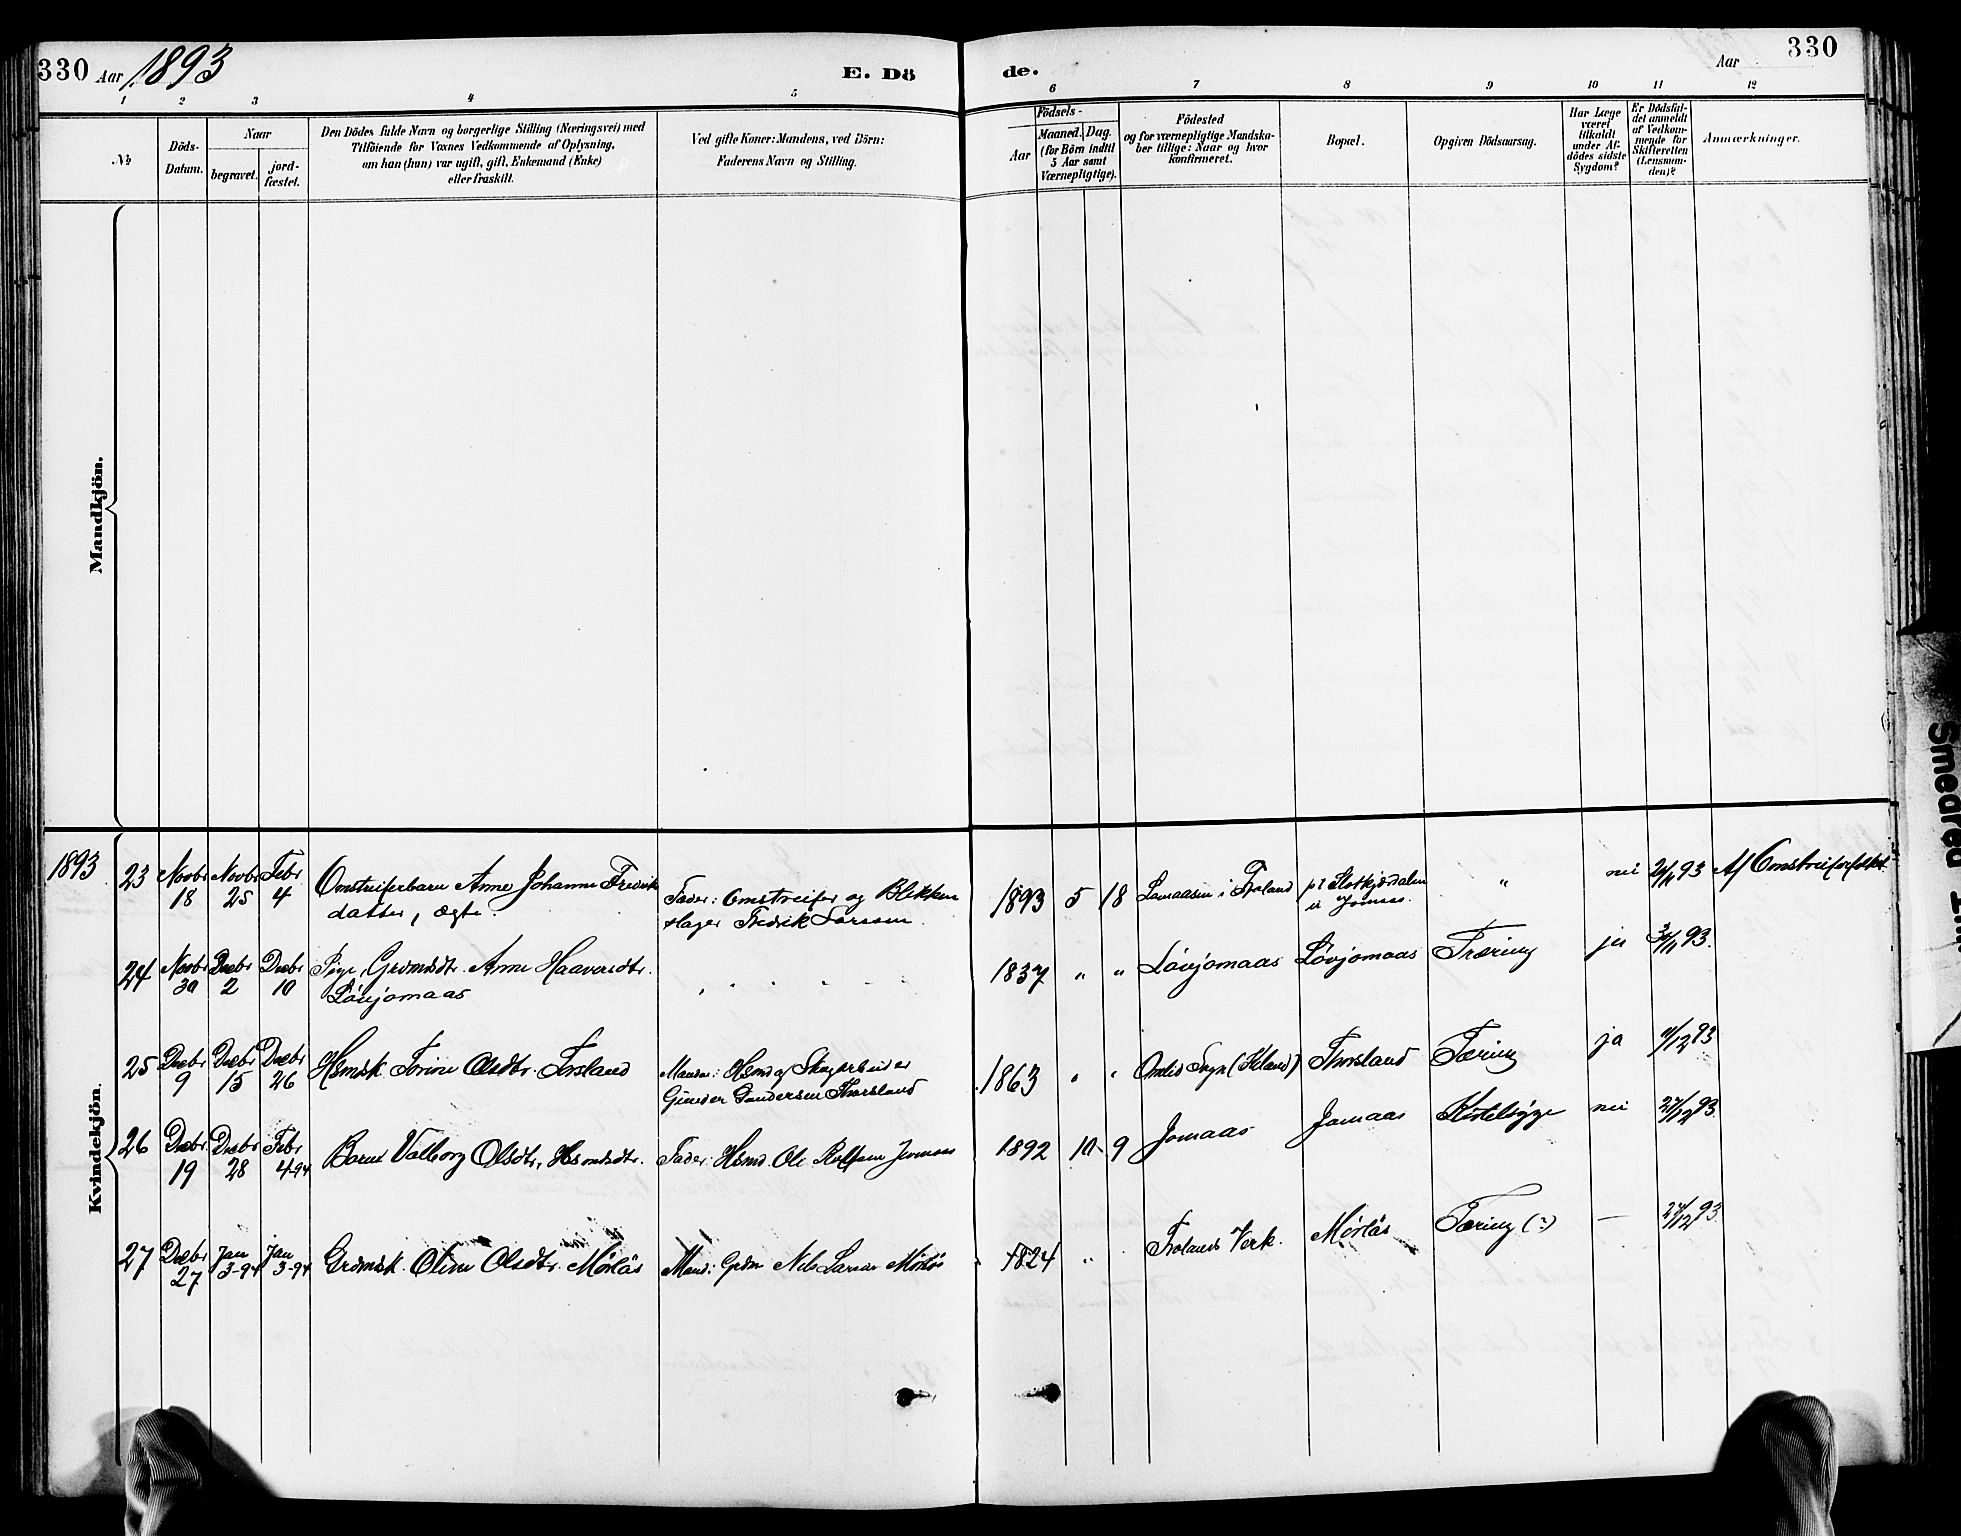 330 Aar 1893
E. Dö
de.
Aar 330
1 2 3 4 5 6 7 8 9 10 11 12
No
Döds-
Datum.
Naar
begravet.
jord-
fæstet.
Den Dödes fulde Navn og borgerlige Stilling (Næringsvei) med
Tilföiende for Voxnes Vedkommende af Oplysning,
om han (hun) var ugift, gift, Enkemand (Enke)
eller fraskilt.
Ved gifte Koner: Mandens, ved Börn:
Faderens Navn og Stilling.
Födsels-
Aar
Maaned. Dag.
(for Börn indtil
5 Aar samt
Værnepligtige).
Födested
og for værnepligtige Mandska-
ber tillige: Naar og hvor
konfirmeret.
Bopæl.
Opgiven Dödsaarsag.
Har Læge
været
tilkaldt
under Af-
dödes sidste
Sygdom?
Er Dödsfal-
det anmeldt
af Vedkom-
mende for
Skifteretten
(Lensman-
den)?
Anmærkninger.
Mandkjön.
Kvindekjön.
1893
23 Novbr 18 Novbr 25 Febr 4 Omstreiferbarn Anne Johanne Fredrik
datter, ægte. Fader: Omstreifer og Blikken
slager Fredrik Larssen. 1893 5 18 i Froland " nei 93 Af Omstreiferfolket
24 Novbr 30 Decbr 2 Decbr 10 Pige, Grdmdsdtr. Anne Haavorsdtr.
Løvjomaas 1837 " " Løvjomaas Løvjomaas Tæring ja 30/11 93.
25 Decbr 9 Decbr 15 Decbr 26 Hsmdsk. Torine Olsdtr. Torsland Mand: Hsmd og Skogarbeider
Gunder Gundersen Thorsland 1863 " " Omlid Sogn Thorsland Tæring ja 12 93
26 Decbr 19 Decbr 28 Febr 4-94 Barnet Valborg Olsdtr, Hsmdsdtr. Fader: Hsmd. Ole Jomaas 1892 10 9 Jomaas Jomaas nei 27/12 93
27 Decbr 27 Jan 3-94 Jan 3-94 Grdmdsk. Oline Olsdtr. Mørløs Mand: Grdm Nils Larsen Mørløs 1824 " Frolands Verk. Mørløs Tæring (?) — 27/12 93.
Smedred I